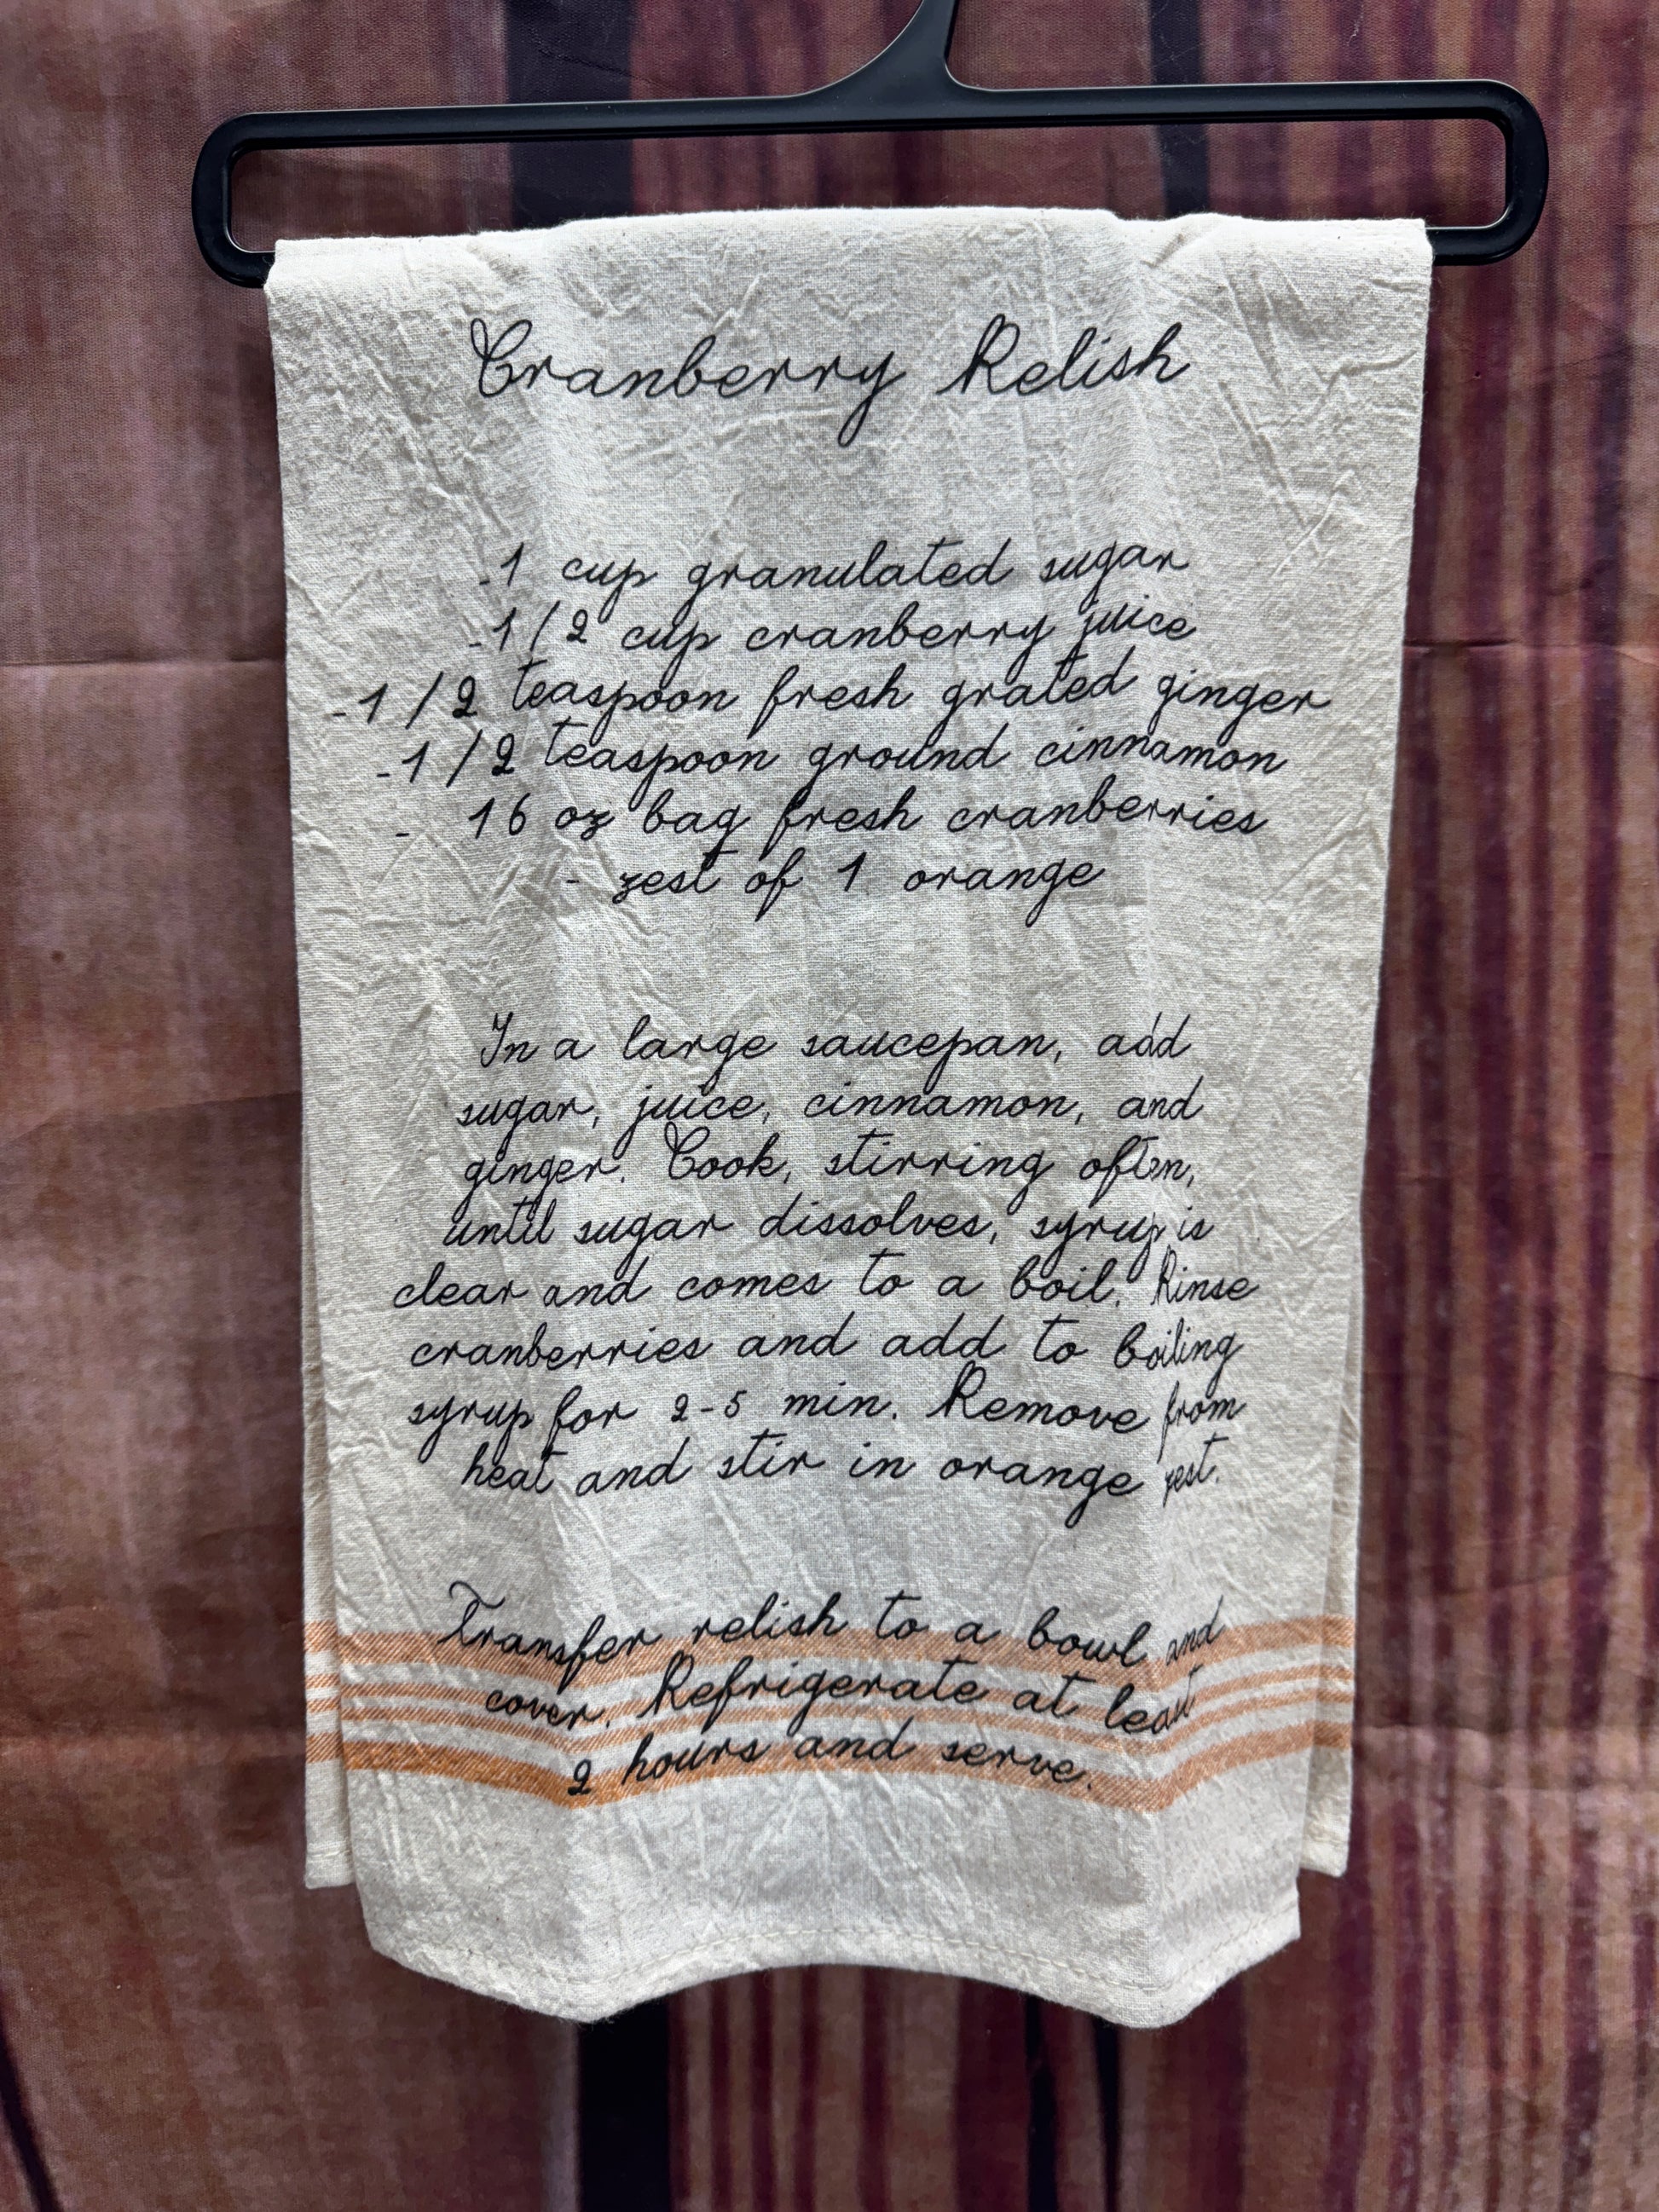 Cranberry Relish
-1 cup granulated sugar
-1/2 cup cranberry juice
-1/2 teaspoon fresh grated ginger
-1/2 teaspoon ground cinnamon
- 16 oz bag fresh cranberries
- zest of 1 orange
In a large saucepan, add
sugar, juice, cinnamon, and
ginger. Cook, stirring often,
until sugar dissolves, syrup is
clear and comes to a boil. Rinse
cranberries and add to boiling
syrup for 2-5 min. Remove from
heat and stir in orange zest.
Transfer relish to a bowl and
cover. Refrigerate at least
2 hours and serve.